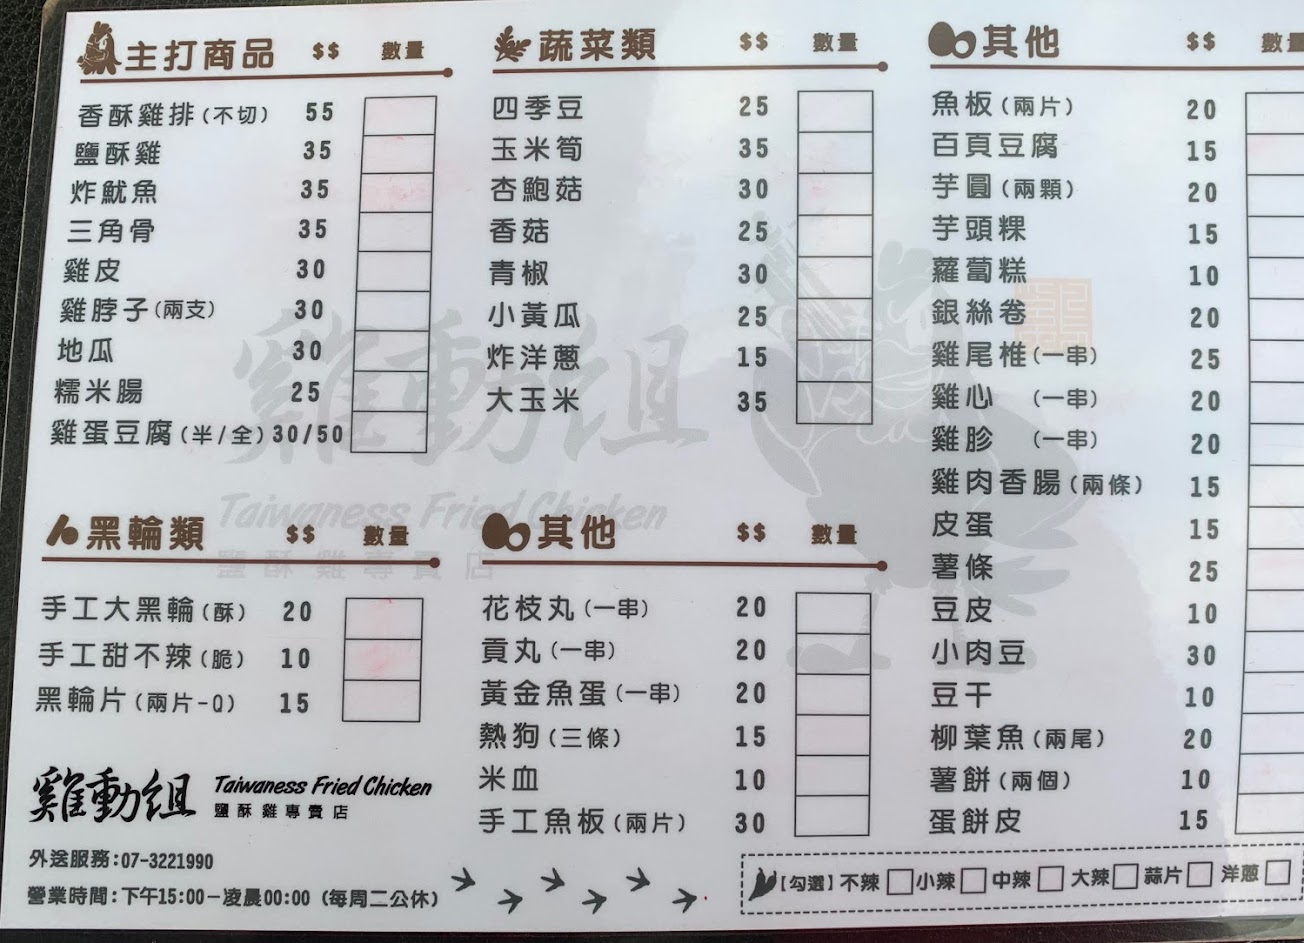 主打商品 $$ 數量
香酥雞排(不切) 55
鹽酥雞 35
炸魷魚 35
三角骨 35
雞皮 30
雞脖子(兩支) 30
地瓜 30
糯米腸 25
雞蛋豆腐(半/全) 30/50
黑輪類 $$ 數量
手工大黑輪(酥) 20
手工甜不辣(脆) 10
黑輪片(兩片-Q) 15
雞動組 Taiwaness Fried Chicken
鹽酥雞專賣店
外送服務:07-3221990
營業時間:下午15:00-凌晨00:00 (每周二公休)
蔬菜類 $$ 數量
四季豆 25
玉米筍 35
杏鮑菇 30
香菇 25
青椒 30
小黃瓜 25
炸洋蔥 15
大玉米 35
其他 $$ 數量
花枝丸(一串) 20
貢丸(一串) 20
黃金魚蛋(一串) 20
熱狗(三條) 15
米血 10
手工魚板(兩片) 30
其他 $$ 數量
魚板(兩片) 20
百頁豆腐 15
芋圓(兩顆) 20
芋頭粿 15
蘿蔔糕 10
銀絲卷 20
雞尾椎(一串) 25
雞心 (一串) 20
雞胗 (一串) 20
雞肉香腸(兩條) 15
皮蛋 15
薯條 25
豆皮 10
小肉豆 30
豆干 10
柳葉魚(兩尾) 20
薯餅(兩個) 10
蛋餅皮 15
[勾選]不辣 小辣 中辣 大辣 蒜片 洋蔥
雞動組
Taiwaness Fried Chicken
鹽酥雞專賣店